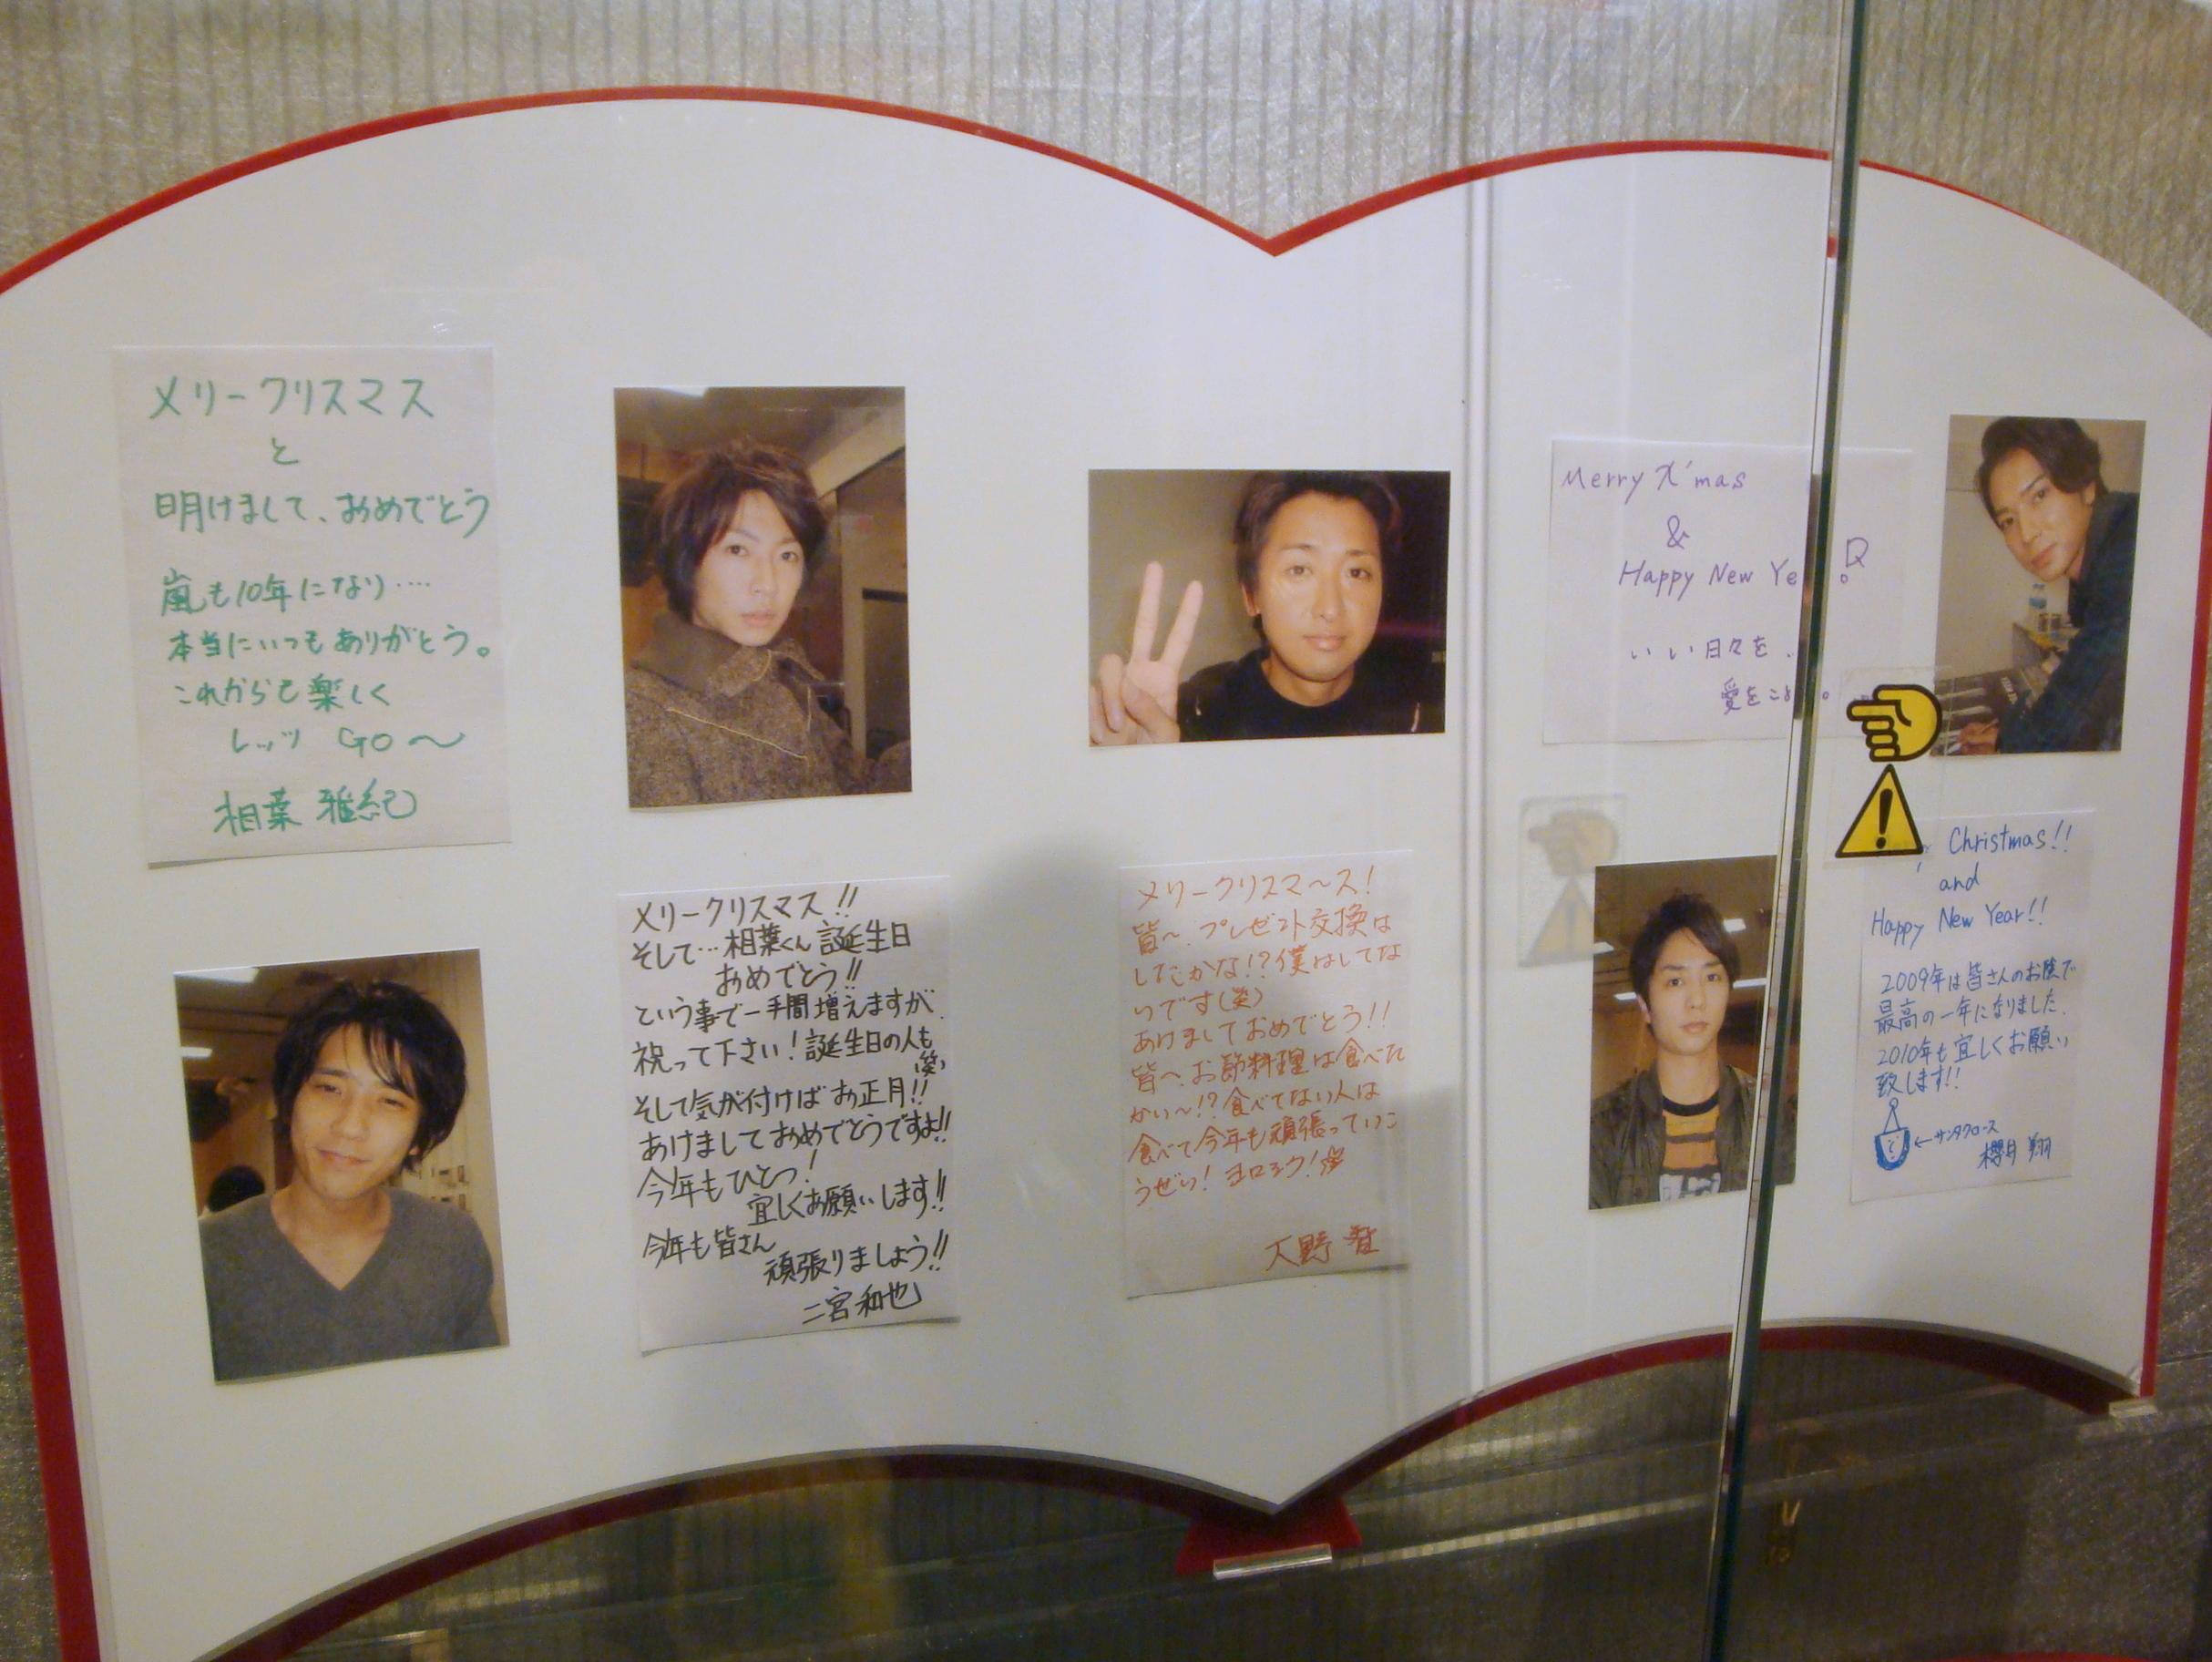 メリークリスマス
と
明けまして、おめでとう
嵐も10年になり‥‥
本当にいつもありがとう。
これからも楽しく
レッツ GO〜
相葉 雅紀
メリークリスマス!!
そして…相葉くん誕生日
おめでとう!!
という事で一手間増えますが、
祝って下さい!誕生日の人も
(笑)
そして気が付けばお正月!!
あけましておめでとうですよ!!
今年もひとつ!
宜しくお願いします!!
今年も皆さん
頑張りましょう!!
二宮和也
メリークリスマ〜ス!
皆〜、プレゼント交換は
したかな!?僕はしてな
いです(笑)
あけましておめでとう!!
皆へ、お節料理は食べた
かい〜!?食べてない人は
食べて今年も頑張っていこ
うぜい!ヨロシク!
大野 智
Merry X'mas
&
Happy New Ye
いい日々を、
愛をこ
Christmas!!
and
Happy New Year!!
2009年は皆さんのお陰で
最高の一年になりました。
2010年も宜しくお願い
致します!!
←サンタクロース
櫻井 翔